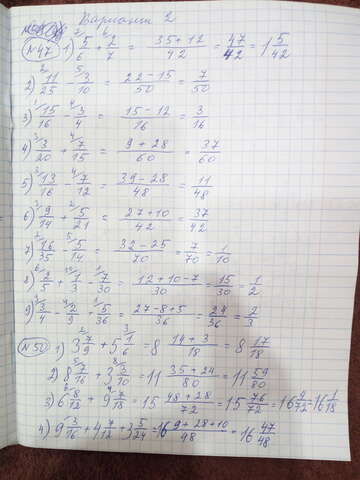 Вариант 2
№47 1) 5/6 + 2/7 = 35+12/42 = 47/42 = 1 5/42
2) 11/25 - 3/10 = 22-15/50 = 7/50
3) 15/16 - 3/4 = 15-12/16 = 3/16
4) 3/20 + 7/15 = 9+28/60 = 37/60
5) 13/16 - 7/12 = 39-28/48 = 11/48
6) 9/14 + 5/21 = 27+10/42 = 37/42
7) 16/35 - 5/14 = 32-25/70 = 7/70 = 1/10
8) 2/5 + 1/3 - 7/30 = 12+10-7/30 = 15/30 = 1/2
9) 3/4 - 2/9 + 5/36 = 27-8+5/36 = 24/36 = 2/3
№50 1) 3 7/9 + 5 1/6 = 8 14+3/18 = 8 17/18
2) 8 7/16 + 3 3/10 = 11 35+24/80 = 11 59/80
3) 6 8/12 + 9 7/18 = 15 48+28/72 = 15 76/72 = 16 4/72 = 16 1/18
4) 9 3/16 + 4 7/12 + 3 5/24 = 16 9+28+10/48 = 16 47/48